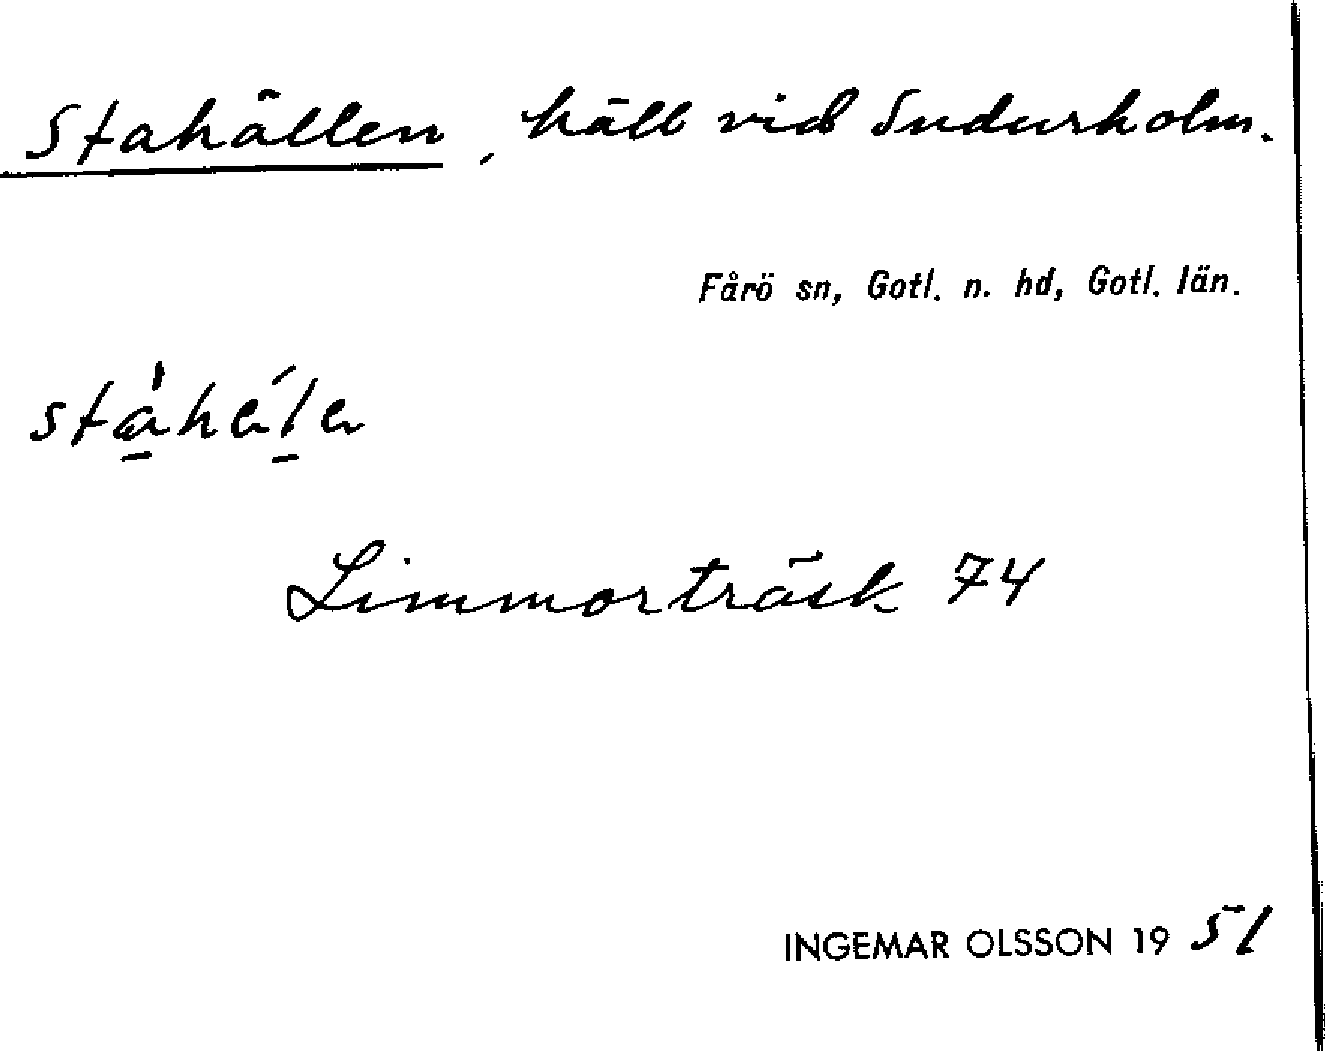 Stahällen, häll vid Sudurholm.
Fårö sn, Gotl. n. hd, Gotl. län.
Limmorträsk 74
INGEMAR OLSSON 1951